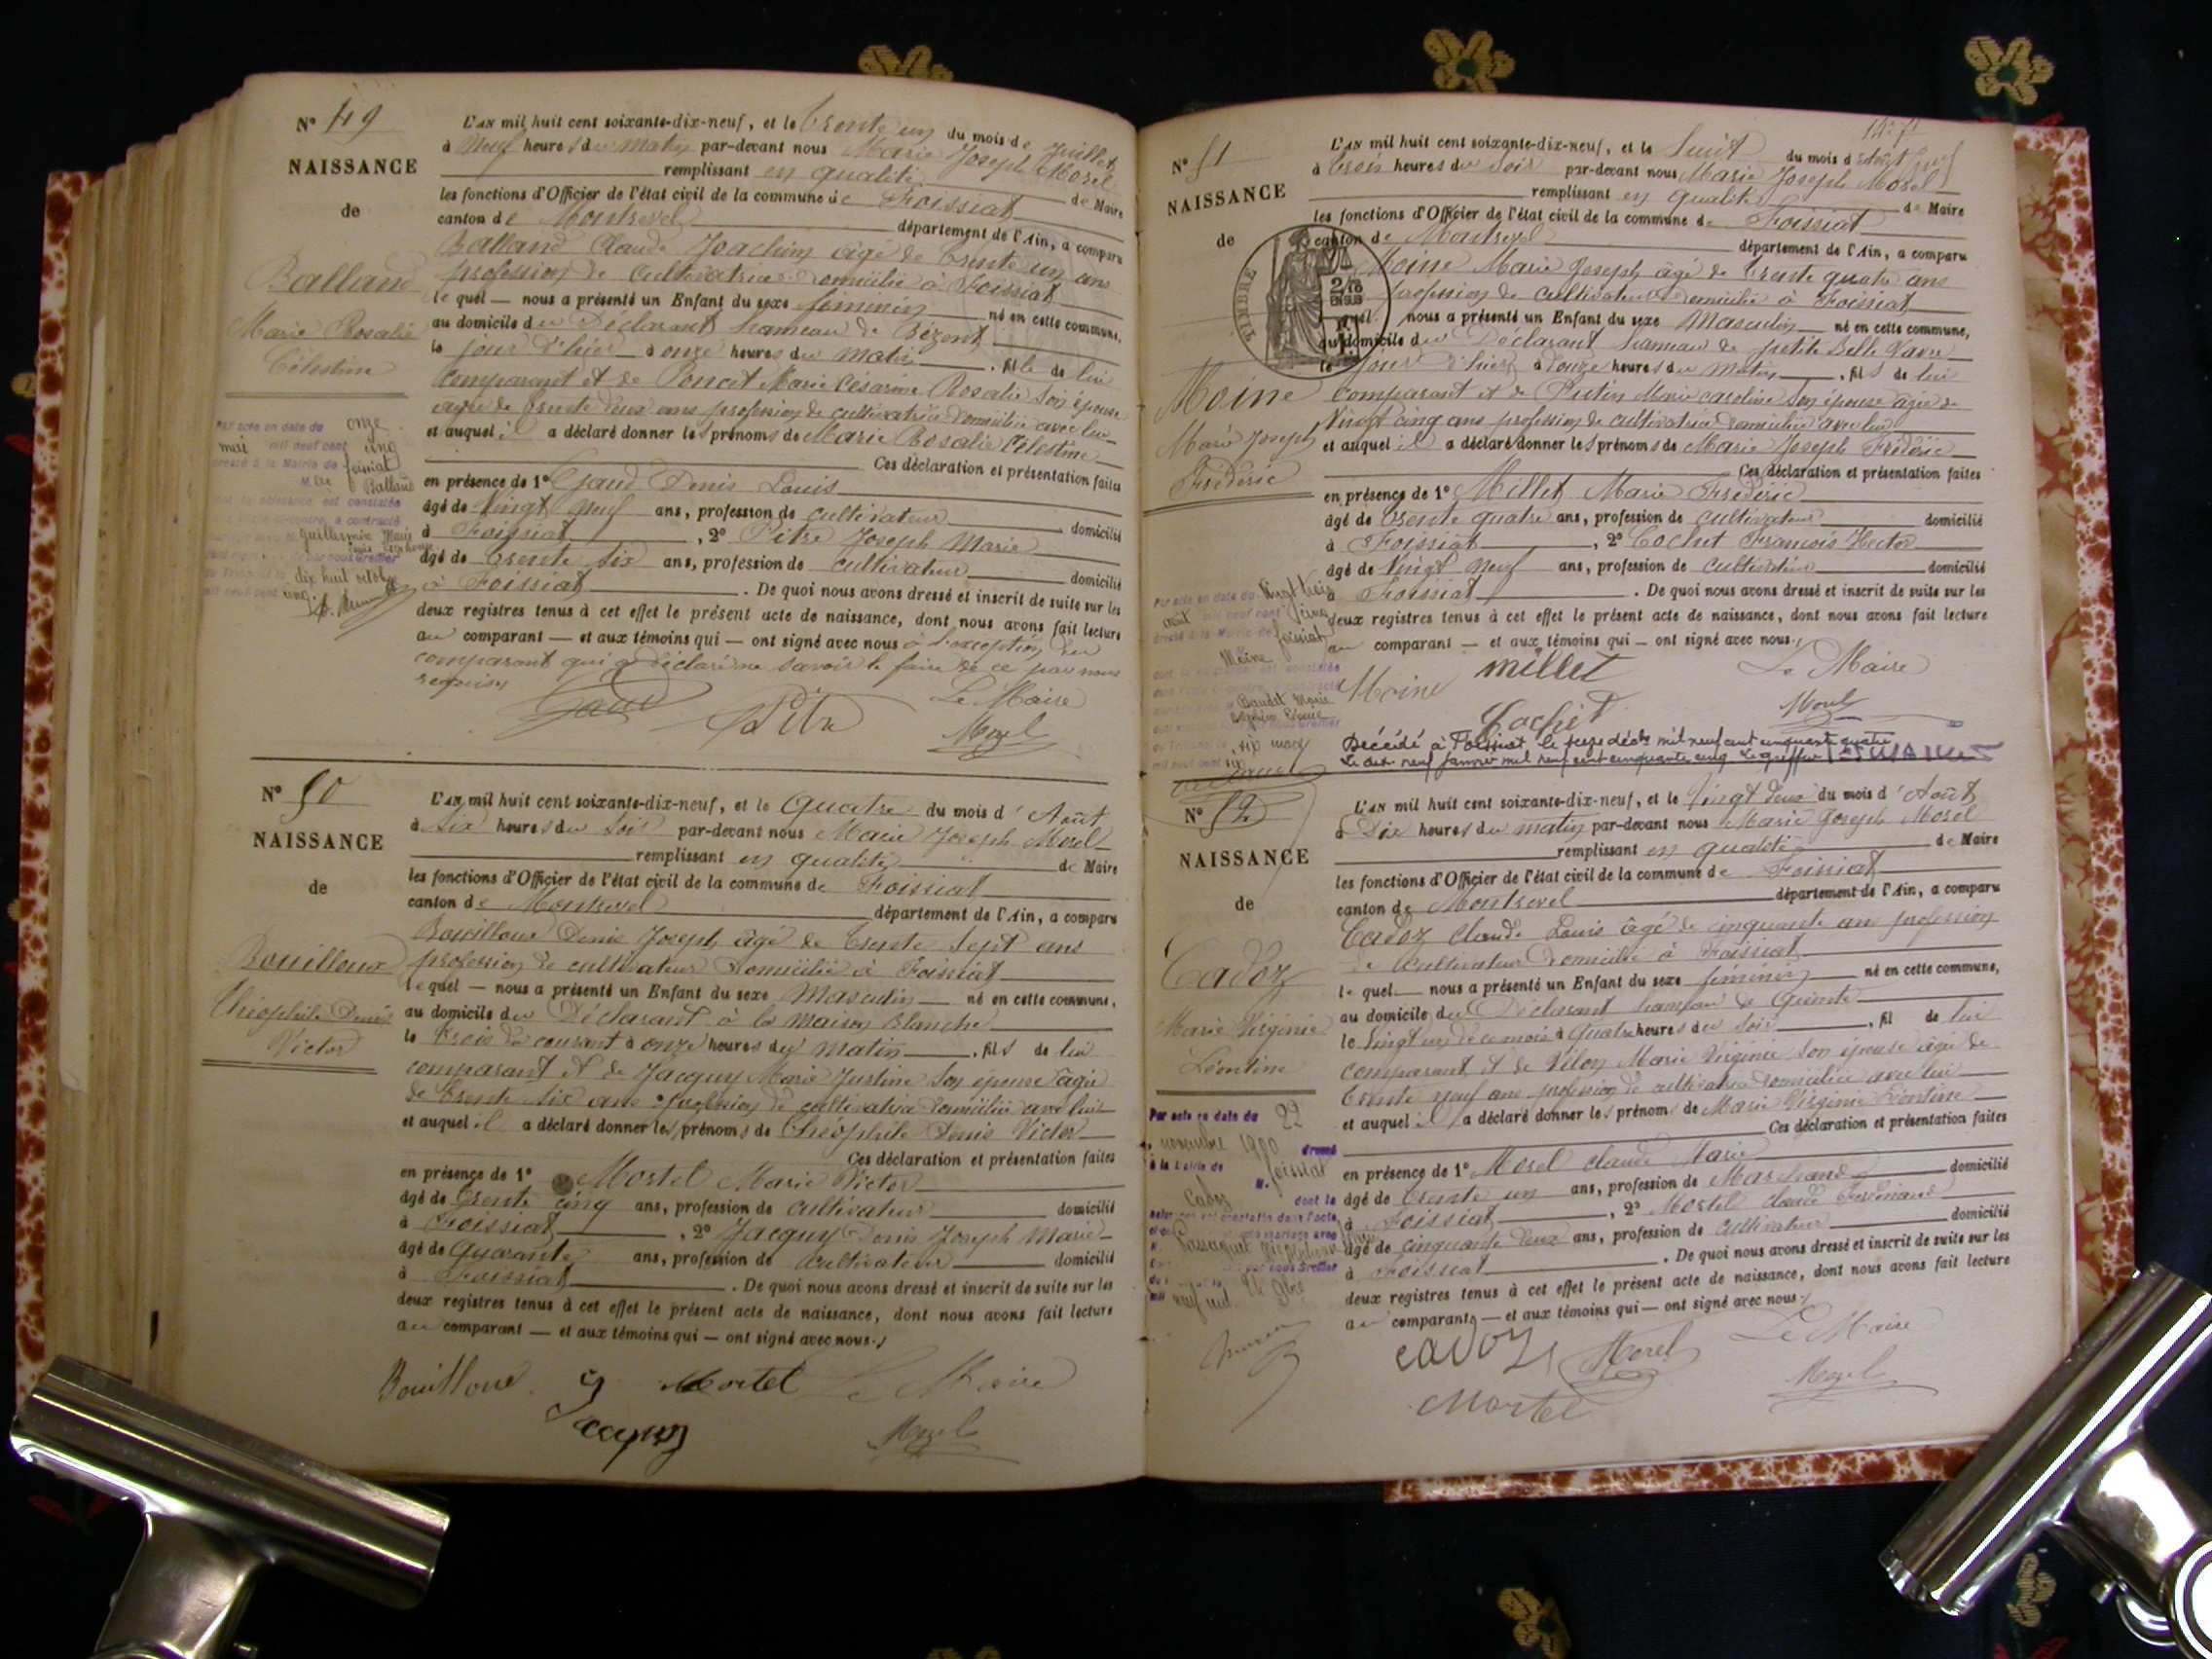 N° 49
NAISSANCE
de
Balland
Marie Rosalie
Célestine
Par acte en date du onze
mai mil neuf cent cinq
dressé à la Mairie de foissiat
Balland
dont la naissance est constatée
a contracté
guillermin Marie
dix huit octobre
mil neuf cent cinq
L'AN mil huit cent soixante-dix-neuf, et le trente un du mois de Juillet
à Neuf heures du Matin par-devant nous Marie Joseph Morel
remplissant en qualité de Maire
les fonctions d'Officier de l'état civil de la commune de Foissiat
canton de Montrevel département de l'Ain, a comparu
Balland Claude Joachim âgé de trente un ans
profession de cultivateur domicilié à Foissiat
le quel — nous a présenté un Enfant du sexe féminin né en cette commune,
au domicile du Déclarant hameau de Bézent
le jour d'hier à onze heures du matin, fille de lui
comparant et de Poncet Marie Césarine Rosalie son épouse
agée de trente deux ans profession de cultivatrice domiciliée avec lui
et auquel il a déclaré donner les prénoms de Marie Rosalie Célestine
Ces déclaration et présentation faites
en présence de 1° Gaud Denis Louis
âgé de Vingt neuf ans, profession de cultivateur domicilié
à Foissiat, 2° Pitre Joseph Marie
âgé de trente six ans, profession de cultivateur domicilié
à Foissiat. De quoi nous avons dressé et inscrit de suite sur les
deux registres tenus à cet effet le présent acte de naissance, dont nous avons fait lecture
au comparant — et aux témoins qui — ont signé avec nous à l'exception du
comparant qui a déclaré ne savoir le faire de ce par nous
requis
Gaud Pitre Le Maire
Morel
N° 50
NAISSANCE
de
Bouilloux
Théophile Denis
Victor
L'AN mil huit cent soixante-dix-neuf, et le Quatre du mois d'Août
à Six heures du Soir par-devant nous Marie Joseph Morel
remplissant en qualité de Maire
les fonctions d'Officier de l'état civil de la commune de Foissiat
canton de Montrevel département de l'Ain, a comparu
Bouilloux Denis Joseph âgé de trente sept ans
profession de cultivateur domicilié à Foissiat
le quel — nous a présenté un Enfant du sexe Masculin né en cette commune,
au domicile du Déclarant à la Maison Blanche
le trois du courant à onze heures du matin, fils de lui
comparant et de Jacquy Marie Justine son épouse âgée
de trente six ans profession de cultivatrice domiciliée avec lui
et auquel il a déclaré donner les prénoms de Théophile Denis Victor
Ces déclaration et présentation faites
en présence de 1° Mortel Marie Victor
âgé de trente cinq ans, profession de cultivateur domicilié
à Foissiat, 2° Jacquy Denis Joseph Marie
âgé de Quarante ans, profession de cultivateur domicilié
à Foissiat. De quoi nous avons dressé et inscrit de suite sur les
deux registres tenus à cet effet le présent acte de naissance, dont nous avons fait lecture
au comparant — et aux témoins qui — ont signé avec nous
Bouilloux Mortel Le Maire
Jacquy Morel
N° 51
NAISSANCE
de
TIMBRE
2/10
EN SUS
Moine
Marie Joseph
Frédéric
Par acte en date du Vingt trois
août mil neuf cent cinq
dressé à la Mairie de foissiat
Moine
Baudet Marie
six mars
L'AN mil huit cent soixante-dix-neuf, et le huit du mois d'Août
à trois heures du Soir par-devant nous Marie Joseph Morel
remplissant en qualité de Maire
les fonctions d'Officier de l'état civil de la commune de Foissiat
canton de Montrevel département de l'Ain, a comparu
Moine Marie Joseph âgé de trente quatre ans
profession de cultivateur domicilié à Foissiat
quel nous a présenté un Enfant du sexe Masculin né en cette commune,
au domicile du Déclarant hameau de petite Belle Vavre
le jour d'hier à onze heures du Matin, fils de lui
comparant et de Putin Marie Caroline son épouse âgée de
Vingt cinq ans profession de cultivatrice domiciliée avec lui
et auquel il a déclaré donner les prénoms de Marie Joseph Frédéric
Ces déclaration et présentation faites
en présence de 1° Millet Marie Frédéric
âgé de trente quatre ans, profession de cultivateur domicilié
à Foissiat, 2° Cochet François Hector
âgé de Vingt neuf ans, profession de cultivateur domicilié
à Foissiat. De quoi nous avons dressé et inscrit de suite sur les
deux registres tenus à cet effet le présent acte de naissance, dont nous avons fait lecture
au comparant — et aux témoins qui — ont signé avec nous
Moine millet Le Maire
Cochet Morel
Décédé à Foissiat le seize déc. mil neuf cent cinquante quatre
Le dix neuf janvier mil neuf cent cinquante cinq Le greffier
N° 52
NAISSANCE
de
Cadoz
Marie Virginie
Léontine
Par acte en date du 22
novembre 1900 dressé
à la Mairie de foissiat
Cadoz dont la
L'AN mil huit cent soixante-dix-neuf, et le Vingt deux du mois d'Août
à Dix heures du matin par-devant nous Marie Joseph Morel
remplissant en qualité de Maire
les fonctions d'Officier de l'état civil de la commune de Foissiat
canton de Montrevel département de l'Ain, a comparu
Cadoz Claude Louis âgé de cinquante ans profession
de cultivateur domicilié à Foissiat
le quel — nous a présenté un Enfant du sexe féminin né en cette commune,
au domicile du Déclarant hameau de Quinte
le Vingt un de ce mois à Quatre heures du Soir, fil de lui
comparant et de Vélon Marie Virginie son épouse âgée de
trente neuf ans profession de cultivatrice domiciliée avec lui
et auquel il a déclaré donner les prénoms de Marie Virginie Léontine
Ces déclaration et présentation faites
en présence de 1° Morel Claude Marie
âgé de trente un ans, profession de Marchand domicilié
à Foissiat, 2° Mortel Claude Ferdinand
âgé de cinquante deux ans, profession de cultivateur domicilié
à Foissiat. De quoi nous avons dressé et inscrit de suite sur les
deux registres tenus à cet effet le présent acte de naissance, dont nous avons fait lecture
au comparant — et aux témoins qui — ont signé avec nous
Cadoz Morel Le Maire
Mortel Morel